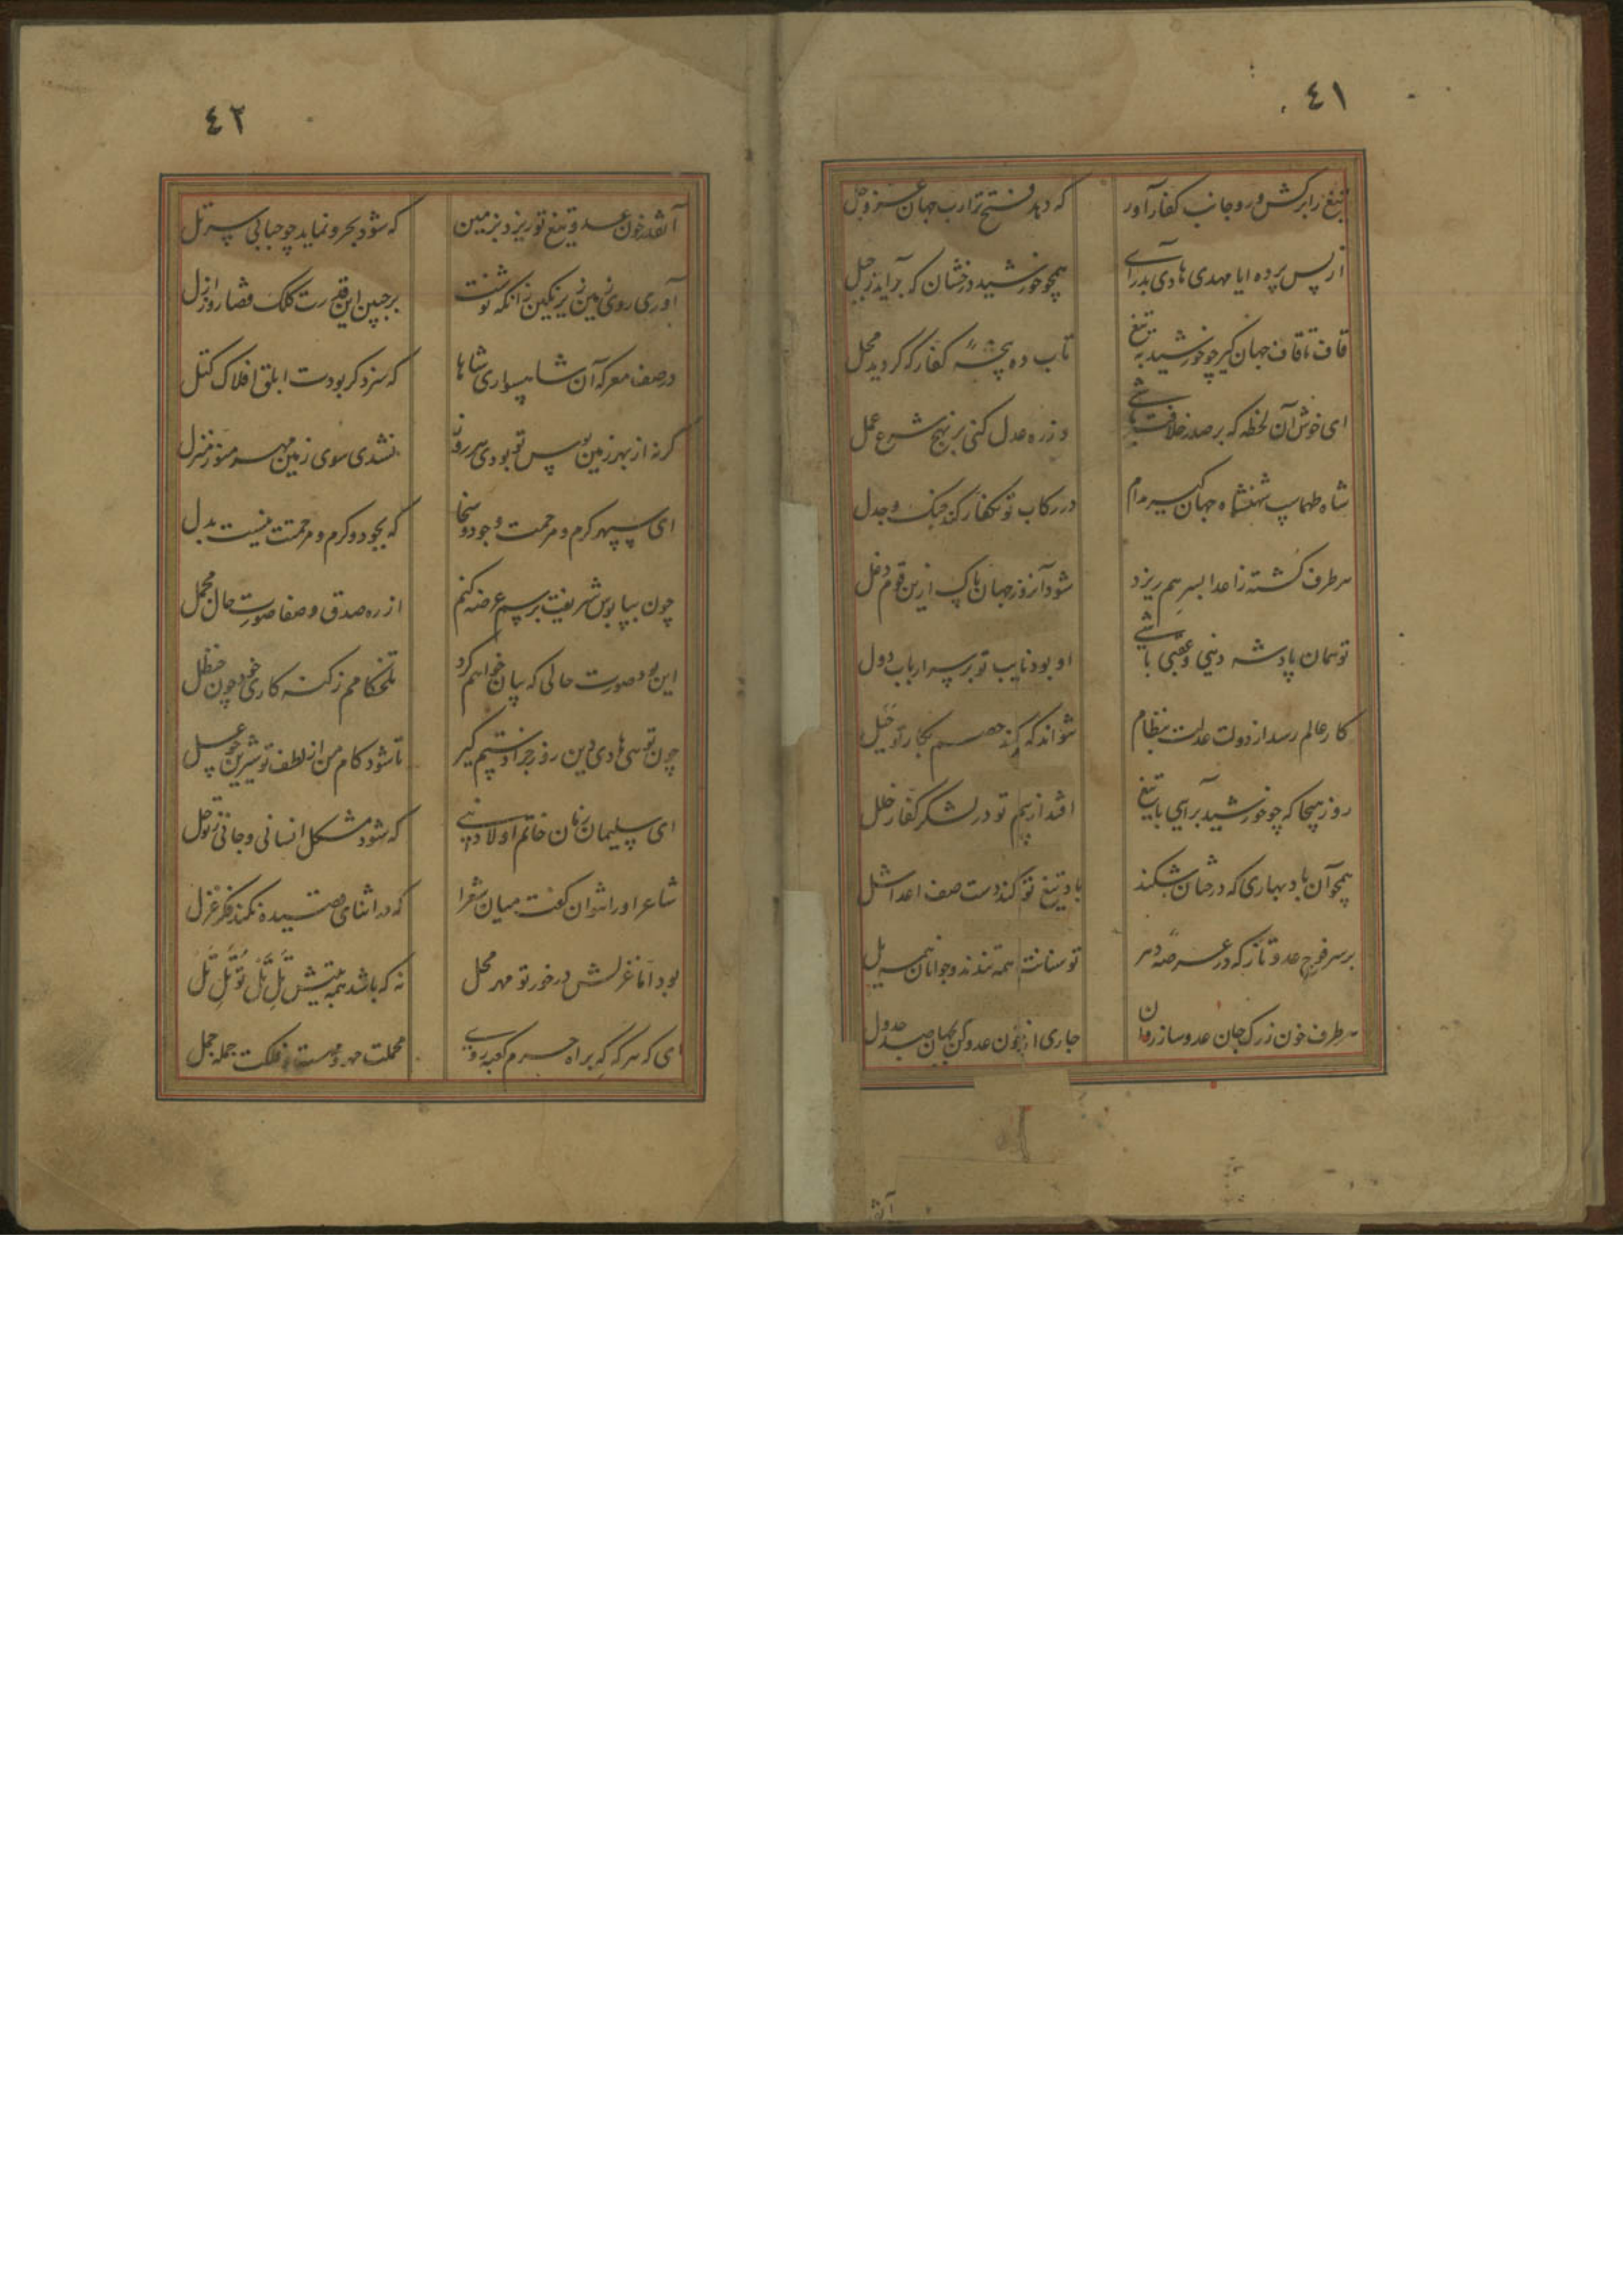 ٤١
تیغ را برکش و رو جانب کفار آور که دهد فتح ترا رب جهان عز و جل
از پس پرده ایا مهدی هادی بدرآی همچو خورشید درخشان که برآید ز جبل
قاف تا قاف جهان گیر چو خورشید به تیغ تاب ده کفار که گردید محل
ای خوش آن لحظه که بر صدر خلافت باشی وز ره عدل کنی بر نهج شرع عمل
شاه طهماسب شهنشاه جهانگیر مدام در رکاب تو بکفار کند جنگ و جدل
هر طرف کشته ز اعدا بسر هم ریزد شود آنروز جهان پاک ازین قوم دغل
تو همان پادشه دینی و عقبی باشی او بود نایب تو بر سر ارباب دول
کار عالم رسد از دولت عدلت بنظام نتواند که کند خصم بکار تو
روز هیجا که چو خورشید برآیی با تیغ افتد از بیم تو در لشکر کفار خلل
همچو آن باد بهاری که درختان شکند باد تیغ تو کند دست صف اعدا شل
بر سر فوج عدو تاز که در عرصه دهر توسنانت همه تندند و جوانان همه یل
هر طرف خون ز رگ جان عدو ساز روان جاری از خون عدو کن بجهان صد جدول
٤٢
آنقدر خون عدو تیغ تو ریزد بزمین که شود بحر و نماید چو حبابی سر تل
آوری روی زمین زیر نگین زانکه نوشت بر جبین این قدرت کلک قضا روز ازل
در صف معرکه آن شاهسواری شاها که سزد گر بودت ابلق افلاک کتل
گر نه از بهر زمین بوس تو بودی هر روز نشدی سوی زمین مهر منور منزل
ای سپهر کرم و مرحمت و جود و سخا که بجود و کرم و مرحمتت نیست بدل
چون بپابوس شریفت برسم عرضه کنم از ره صدق و صفا صورت حال مجمل
این بود صورت حالی که بیان خواهم کرد تلخکامم ز گنه کاری خود چون حنظل
چون تویی هادی دین روز جزا دستم گیر تا شود کام من از لطف تو شیرین چو عسل
ای سلیمان زمان خاتم اولاد نبی که شود مشکل انسانی و جانی ز تو حل
شاعر او را نتوان گفت میان شعرا که در اثنای قصیده نکند فکر غزل
بود اما غزلش در خور تو مهر محل نه که باشد همه بیتش تل تل تو تل تل
ای که هر گه که براه حرم کعبه روی محملت مهر و مهست و فلکت جمله جمل